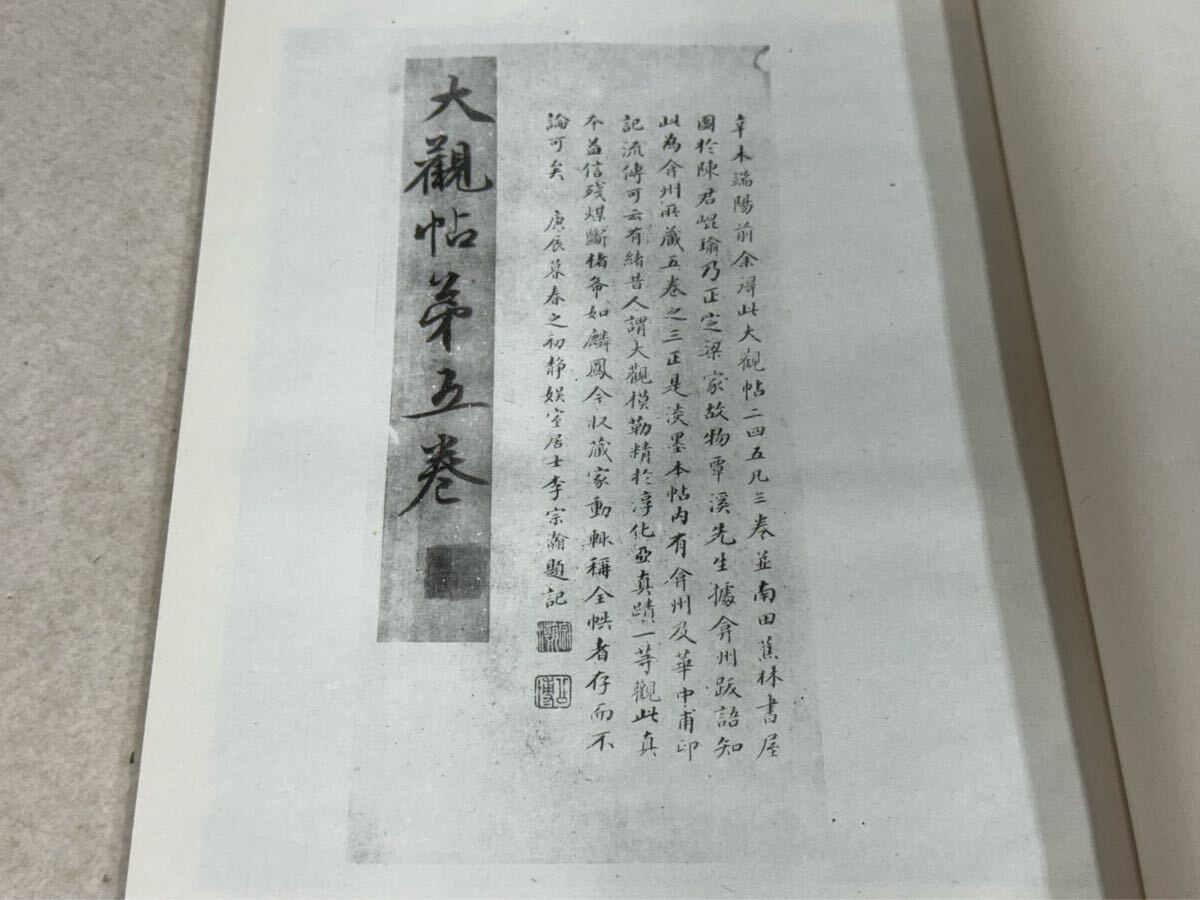 辛未端陽前余得此大觀帖二四五凡三卷並南田蕉林書屋
圖於陳君崐瑜乃正定梁家故物覃溪先生據弇州跋語知
此為弇州所藏五卷之三正是淡墨本帖內有弇州及華中甫印
記流傳可云有緒昔人謂大觀模勒精於淳化亞真蹟一等觀此真
本益信殘煤斷楮希如麟鳳今收藏家動輒稱全帙者存而不
論可矣 庚辰暮春之初靜娛室居士李宗瀚題記
大觀帖第五卷